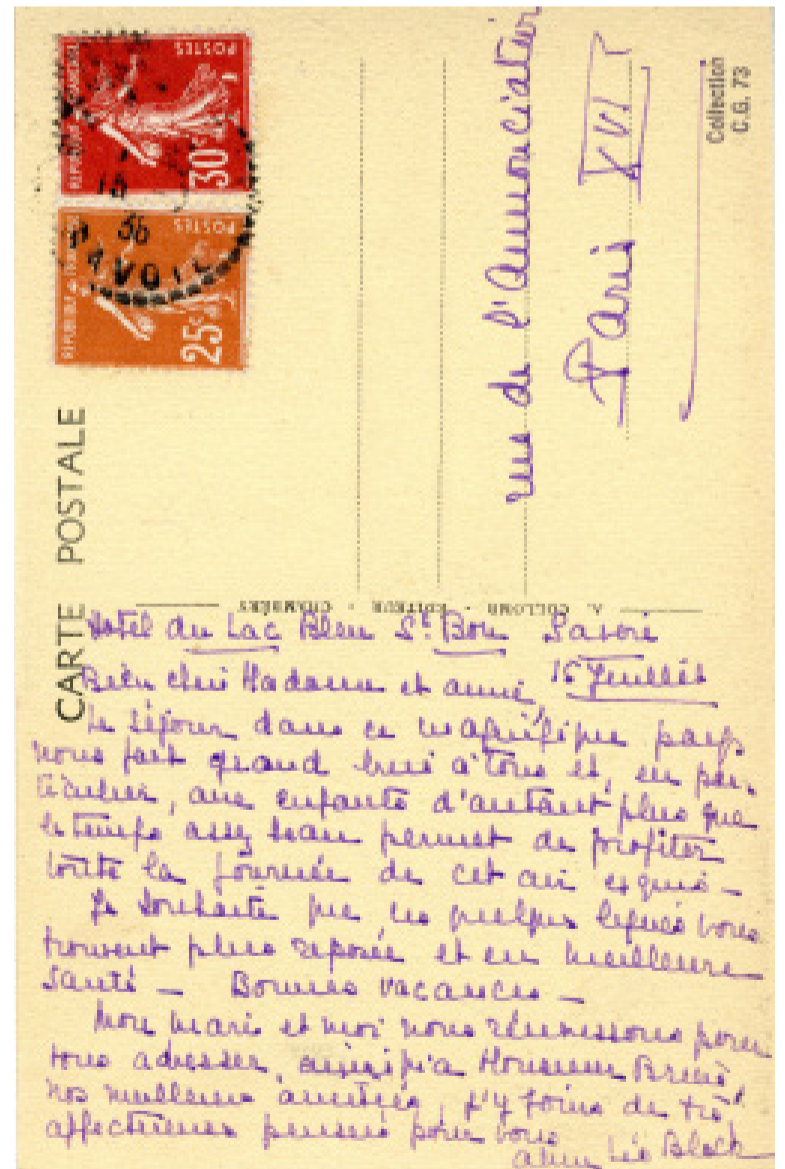 CARTE POSTALE
REPUBLIQUE FRANCAISE
POSTES
30c
REPUBLIQUE FRANCAISE
POSTES
25c
15
36
SAVOIE
rue de l'Annonciation
Paris XVI
Collection
C.G. 73
A. COLLOMB - EDITEUR - CHAMBÉRY
Hotel du Lac Bleu St. Bon Savoie
15 Juillet
Bien chère Madame et amie,
Le séjour dans ce magnifique pays
nous fait grand bien à tous et, en par-
ticulier, aux enfants d'autant plus que
le temps assez beau permet de profiter
toute la journée de cet air exquis -
Je souhaite que ces quelques lignes vous
trouvent plus reposée et en meilleure
santé - Bonnes vacances -
Mon mari et moi nous réunissons pour
vous adresser, ainsi qu'à Monsieur
nos meilleures amitiés, j'y joins de très
affectueuses pensées pour vous
Léo Bloch